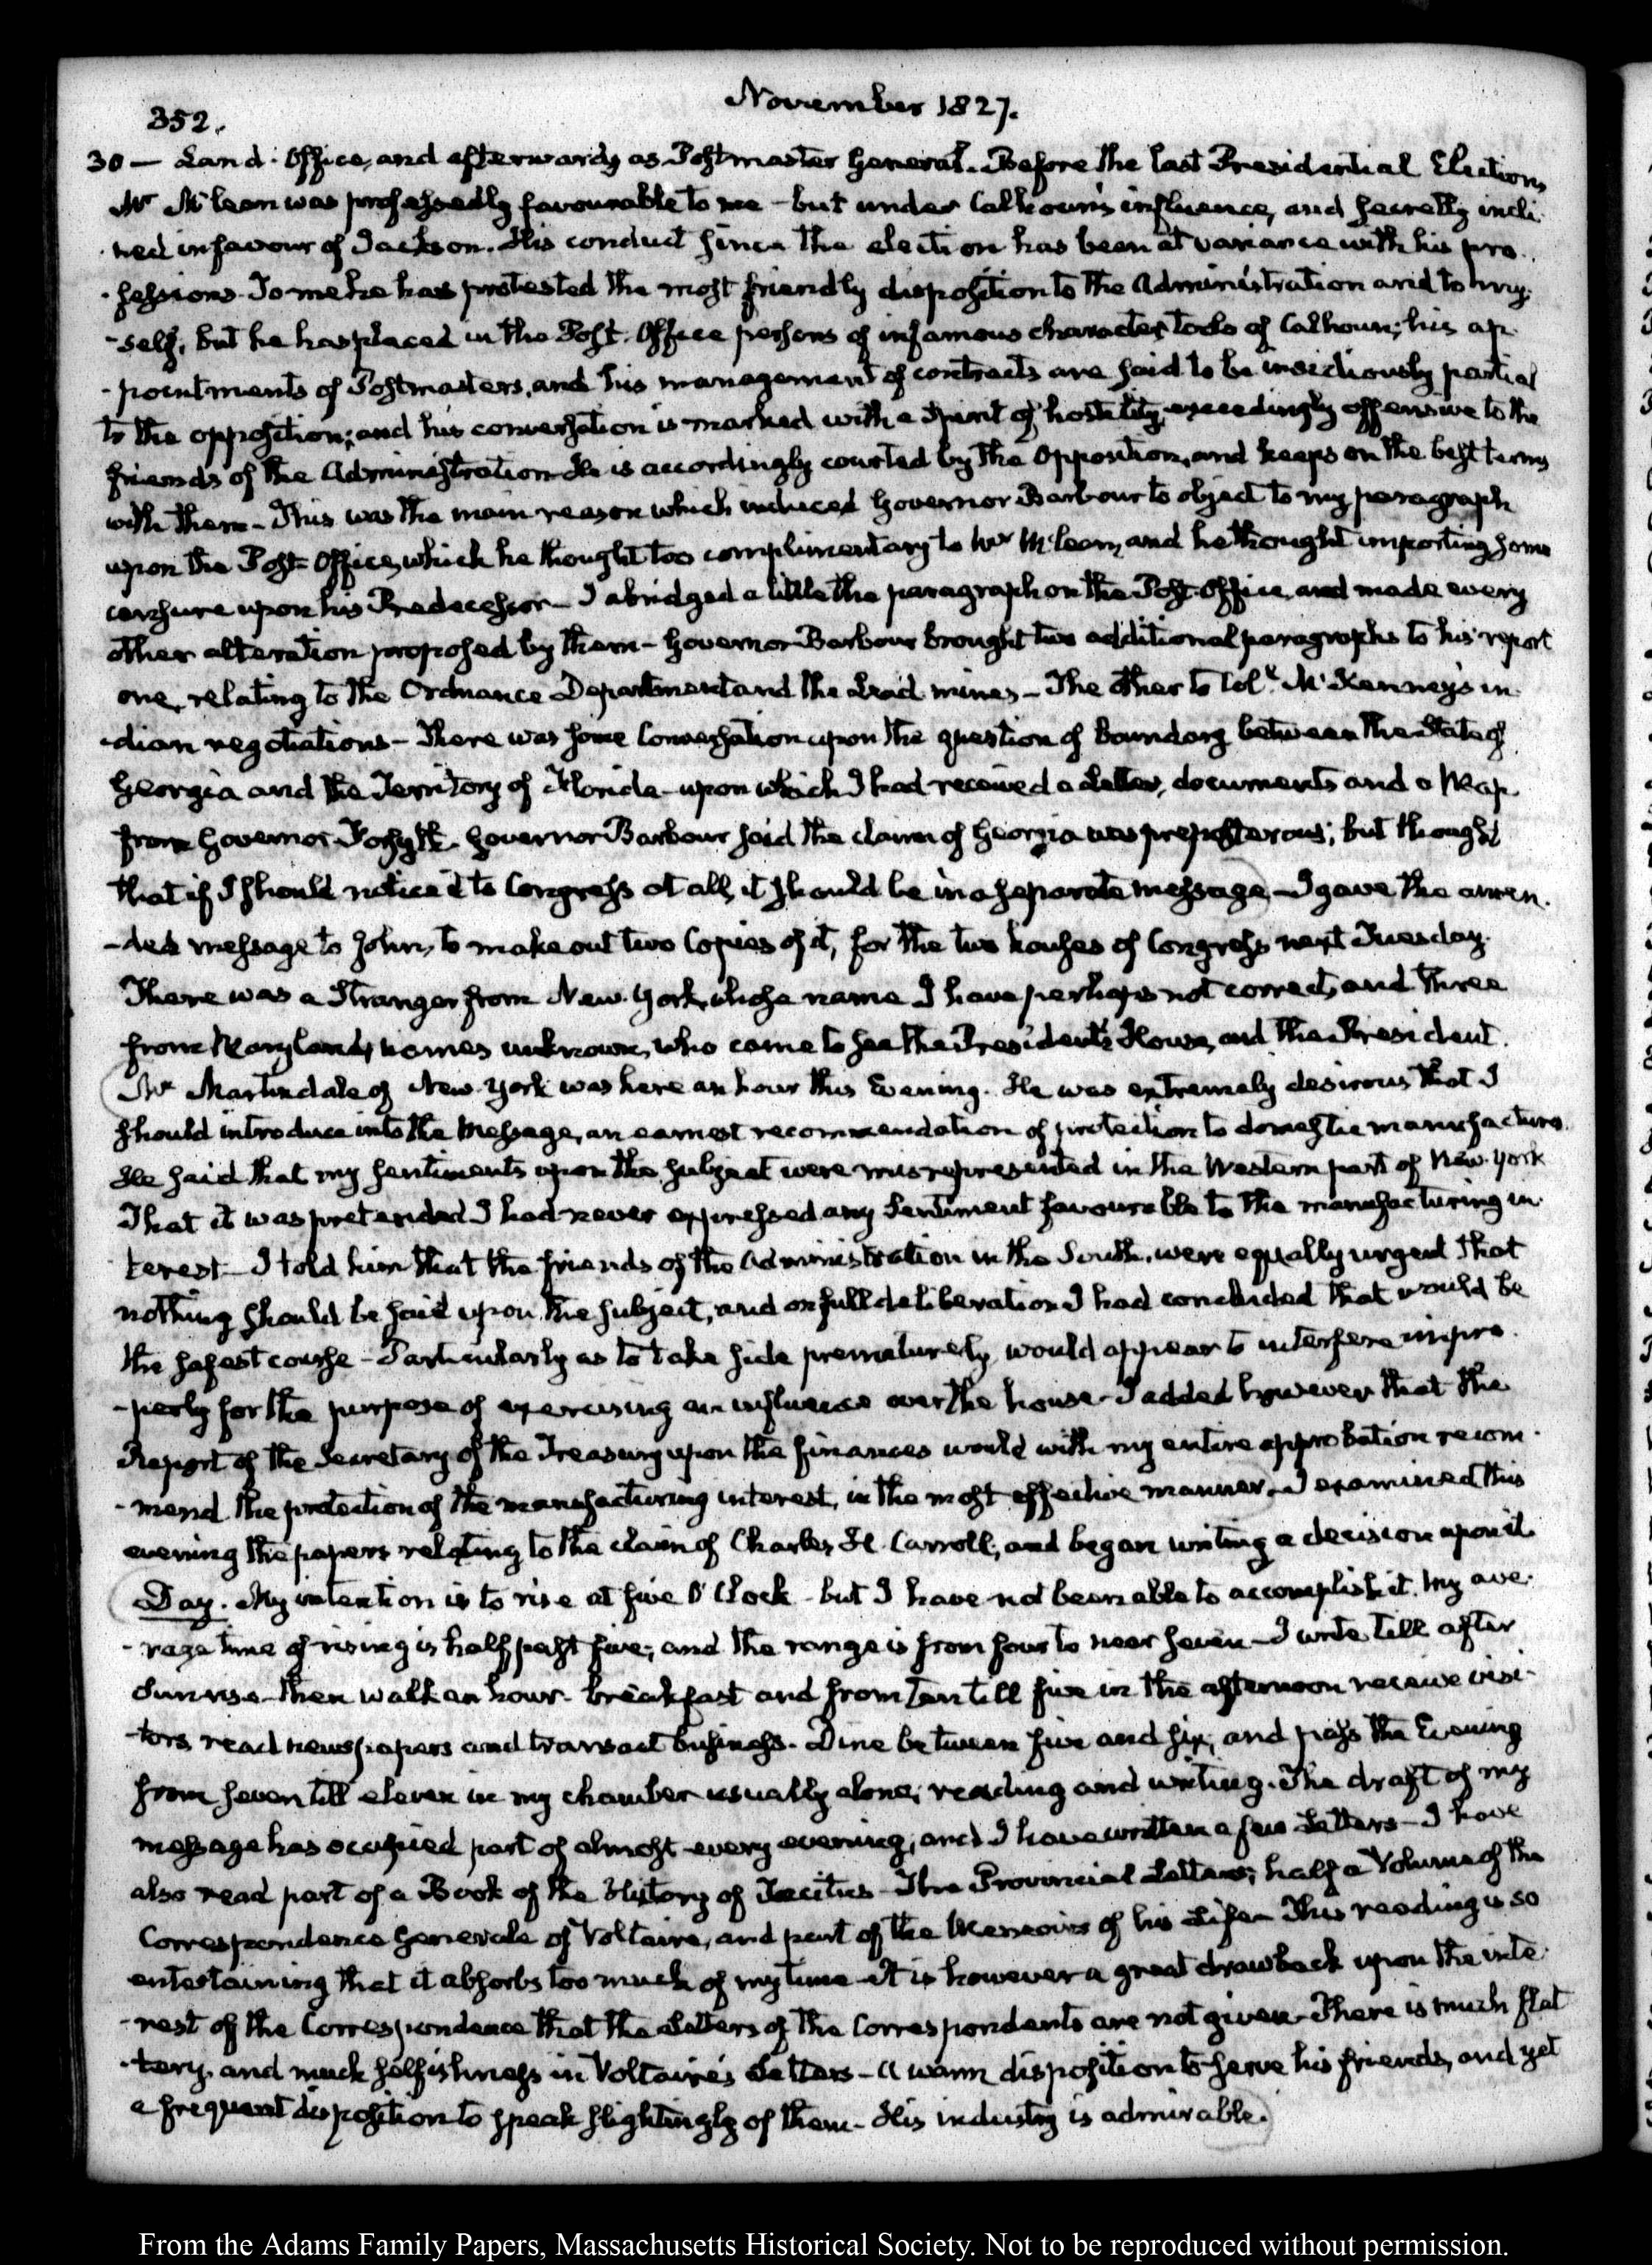 352.
November 1827.
30 — Land-Office, and afterwards as Postmaster General. Before the last Presidential Election,
Mr McLean was professedly favourable to me — but under Calhoun's influence, and secretly incli-
-ned in favour of Jackson. His conduct since the election has been at variance with his pro-
-fessions. To me he has protested the most friendly disposition to the Administration and to my-
-self, but he has placed in the Post-Office persons of infamous character, tools of Calhoun; his ap-
-pointments of Postmasters, and his management of contracts are said to be insidiously partial
to the opposition; and his conversation is marked with a Spirit of hostility, exceedingly offensive to the
friends of the Administration. He is accordingly courted by the Opposition, and keeps on the best terms
with them — This was the main reason which induced Governor Barbour to object to my paragraph
upon the Post-Office, which he thought too complimentary to Mr McLean, and he thought importing some
censure upon his Predecessor — I abridged a little the paragraph on the Post-Office, and made every
other alteration proposed by them — Governor Barbour brought two additional paragraphs to his report
one, relating to the Ordnance Department and the Lead mines — The other to Col. McKenney's in-
-dian negotiations — There was some Conversation upon the question of Boundary between the State of
Georgia and the Territory of Florida — upon which I had received a Letter, documents and a Map
from Governor Forsyth. Governor Barbour said the claim of Georgia was preposterous; but thought
that if I should notice it to Congress at all, it should be in a separate message — I gave the amen-
-ded message to John, to make out two Copies of it, for the two houses of Congress next Tuesday.
There was a Stranger from New-York, whose name I have perhaps not correct, and three
from Maryland, names unknown, who came to see the President's House, and the President.
Mr Martindale of New-York was here an hour this Evening. He was extremely desirous that I
should introduce into the Message, an earnest recommendation of protection to domestic manufactures.
He said that my sentiments upon the subject were misrepresented in the Western part of New-York
That it was pretended I had never expressed any Sentiment favourable to the manufacturing in-
terest — I told him that the friends of the Administration in the South, were equally urgent that
nothing should be said upon the subject, and on full deliberation I had concluded that would be
the safest course — Particularly as to take side prematurely, would appear to interfere impro-
-perly for the purpose of exercising an influence over the house — I added however that the
Report of the Secretary of the Treasury upon the finances would with my entire approbation recom-
-mend the protection of the manufacturing interest, in the most effective manner. I examined this
evening the papers relating to the claim of Charles H. Carroll, and began writing a decision upon it.
Day. My intention is to rise at five O'Clock — but I have not been able to accomplish it. My ave-
-rage time of rising is half past five; and the range is from four to near seven — I write till after
Sunrise — then walk an hour — breakfast and from ten till five in the afternoon receive visi-
-tors, read newspapers and transact business. Dine between five and six, and pass the Evening
from seven till eleven in my chamber usually alone; reading and writing. The draft of my
message has occupied part of almost every evening; and I have written a few Letters — I have
also read part of a Book of the History of Tacitus — The Provincial Letters; half a Volume of the
Correspondence Generale of Voltaire, and part of the Memoirs of his Life — This reading is so
entertaining that it absorbs too much of my time — It is however a great drawback upon the inte-
-rest of the Correspondence that the Letters of the Correspondents are not given — There is much flat-
-tery, and much selfishness in Voltaire's Letters — A warm disposition to serve his friends, and yet
a frequent disposition to speak slightingly of them — His industry is admirable.
From the Adams Family Papers, Massachusetts Historical Society. Not to be reproduced without permission.